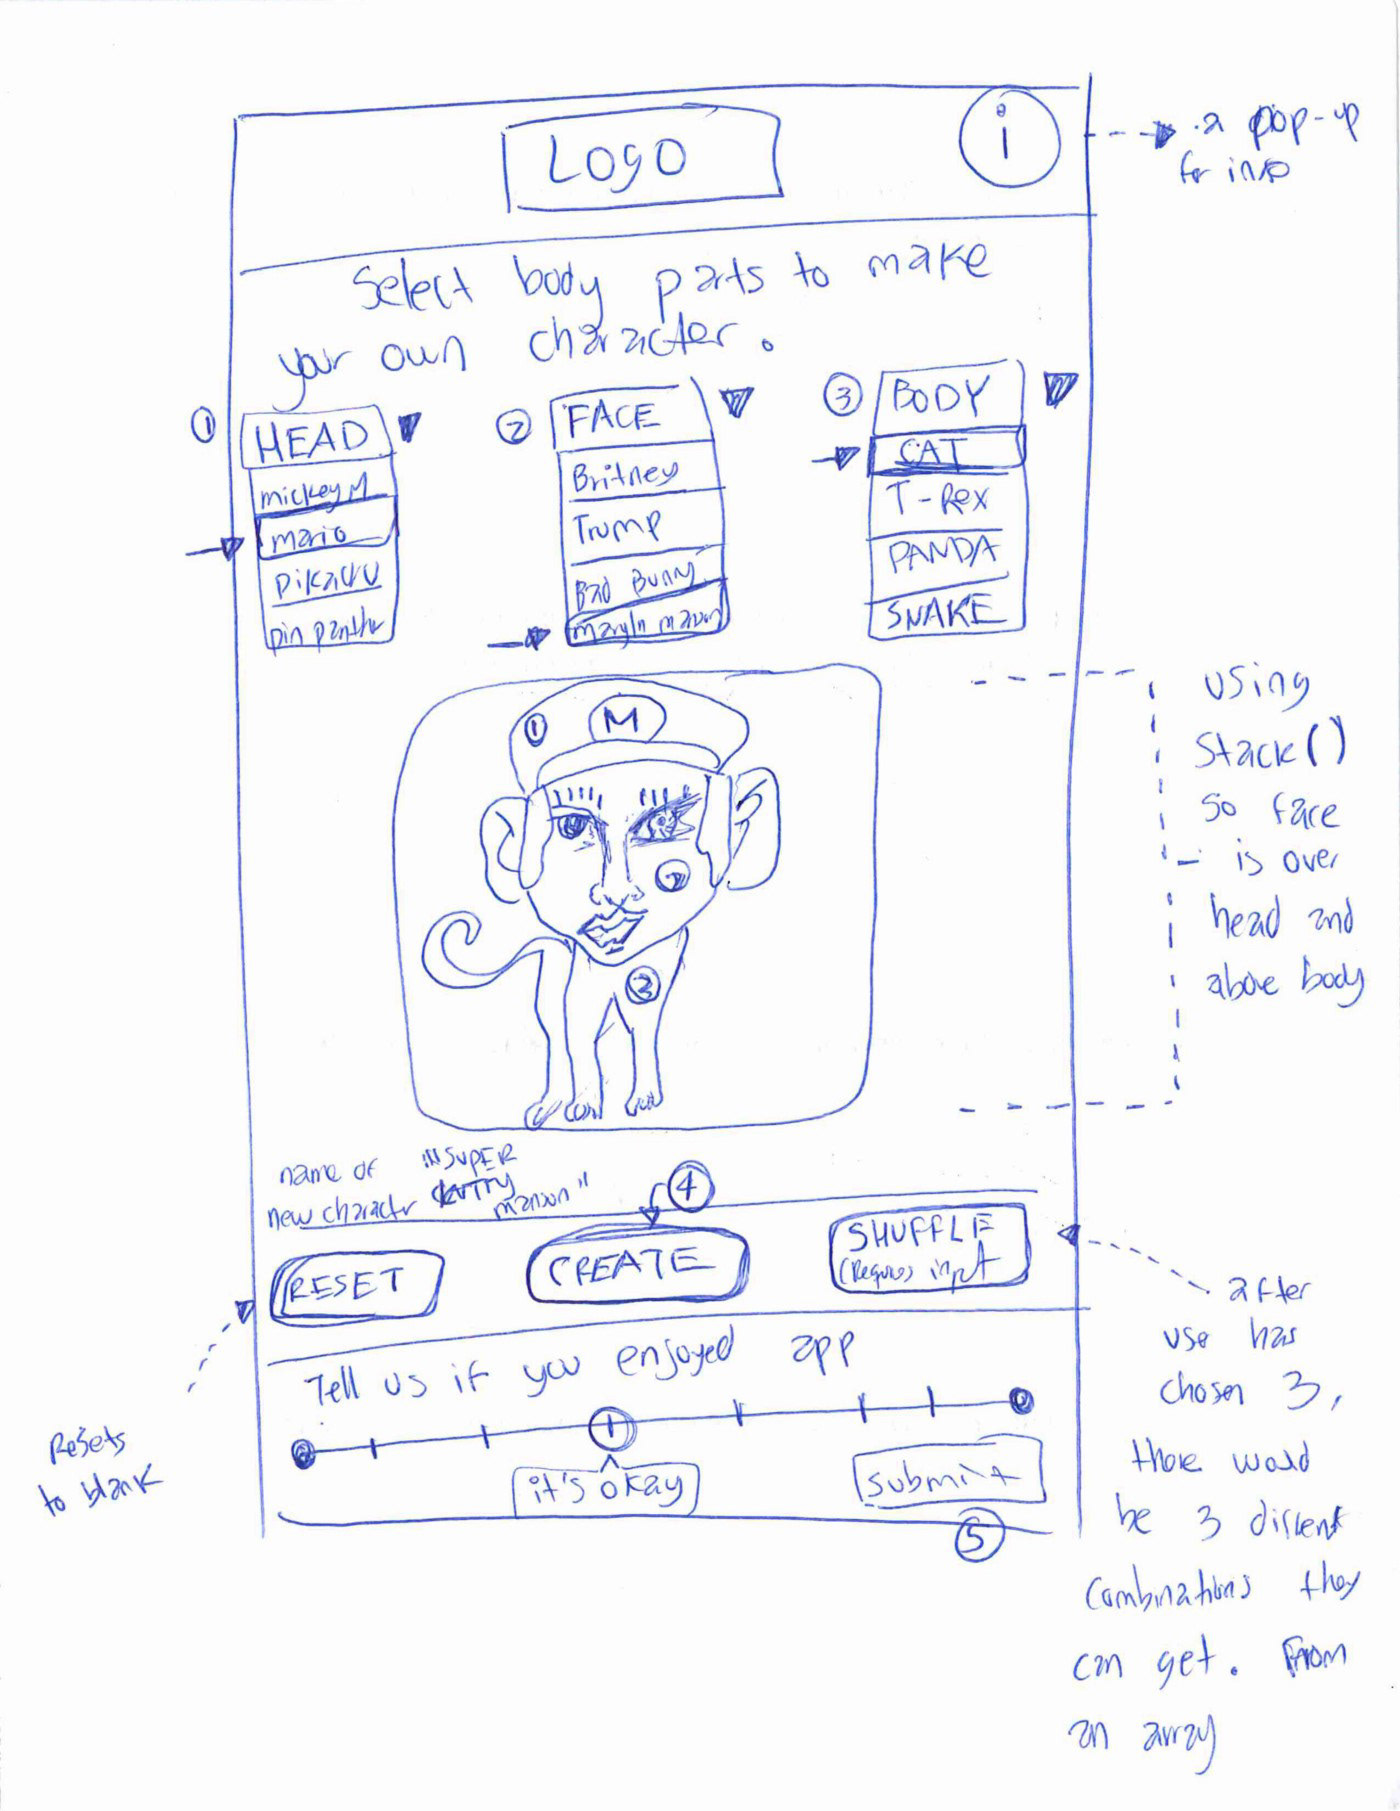 LOGO
i
a pop-up
for info
Select body parts to make
your own character.
1
HEAD
mickey M
mario
Pikachu
pin panther
2
FACE
Britney
Trump
Bad Bunny
3
BODY
CAT
T-Rex
PANDA
SNAKE
1
M
2
3
using
Stack()
so face
is over
head and
above body
name of
new character
"SUPER
KITTY
manson"
4
RESET
CREATE
SHUFFLE
(Requires input
Resets
to blank
after
use has
chosen 3,
there would
be 3 different
combinations they
can get. From
an array
Tell us if you enjoyed app
it's okay
submit
5